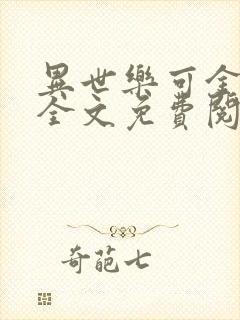 異世樂可全
全文免費閱
奇葩七